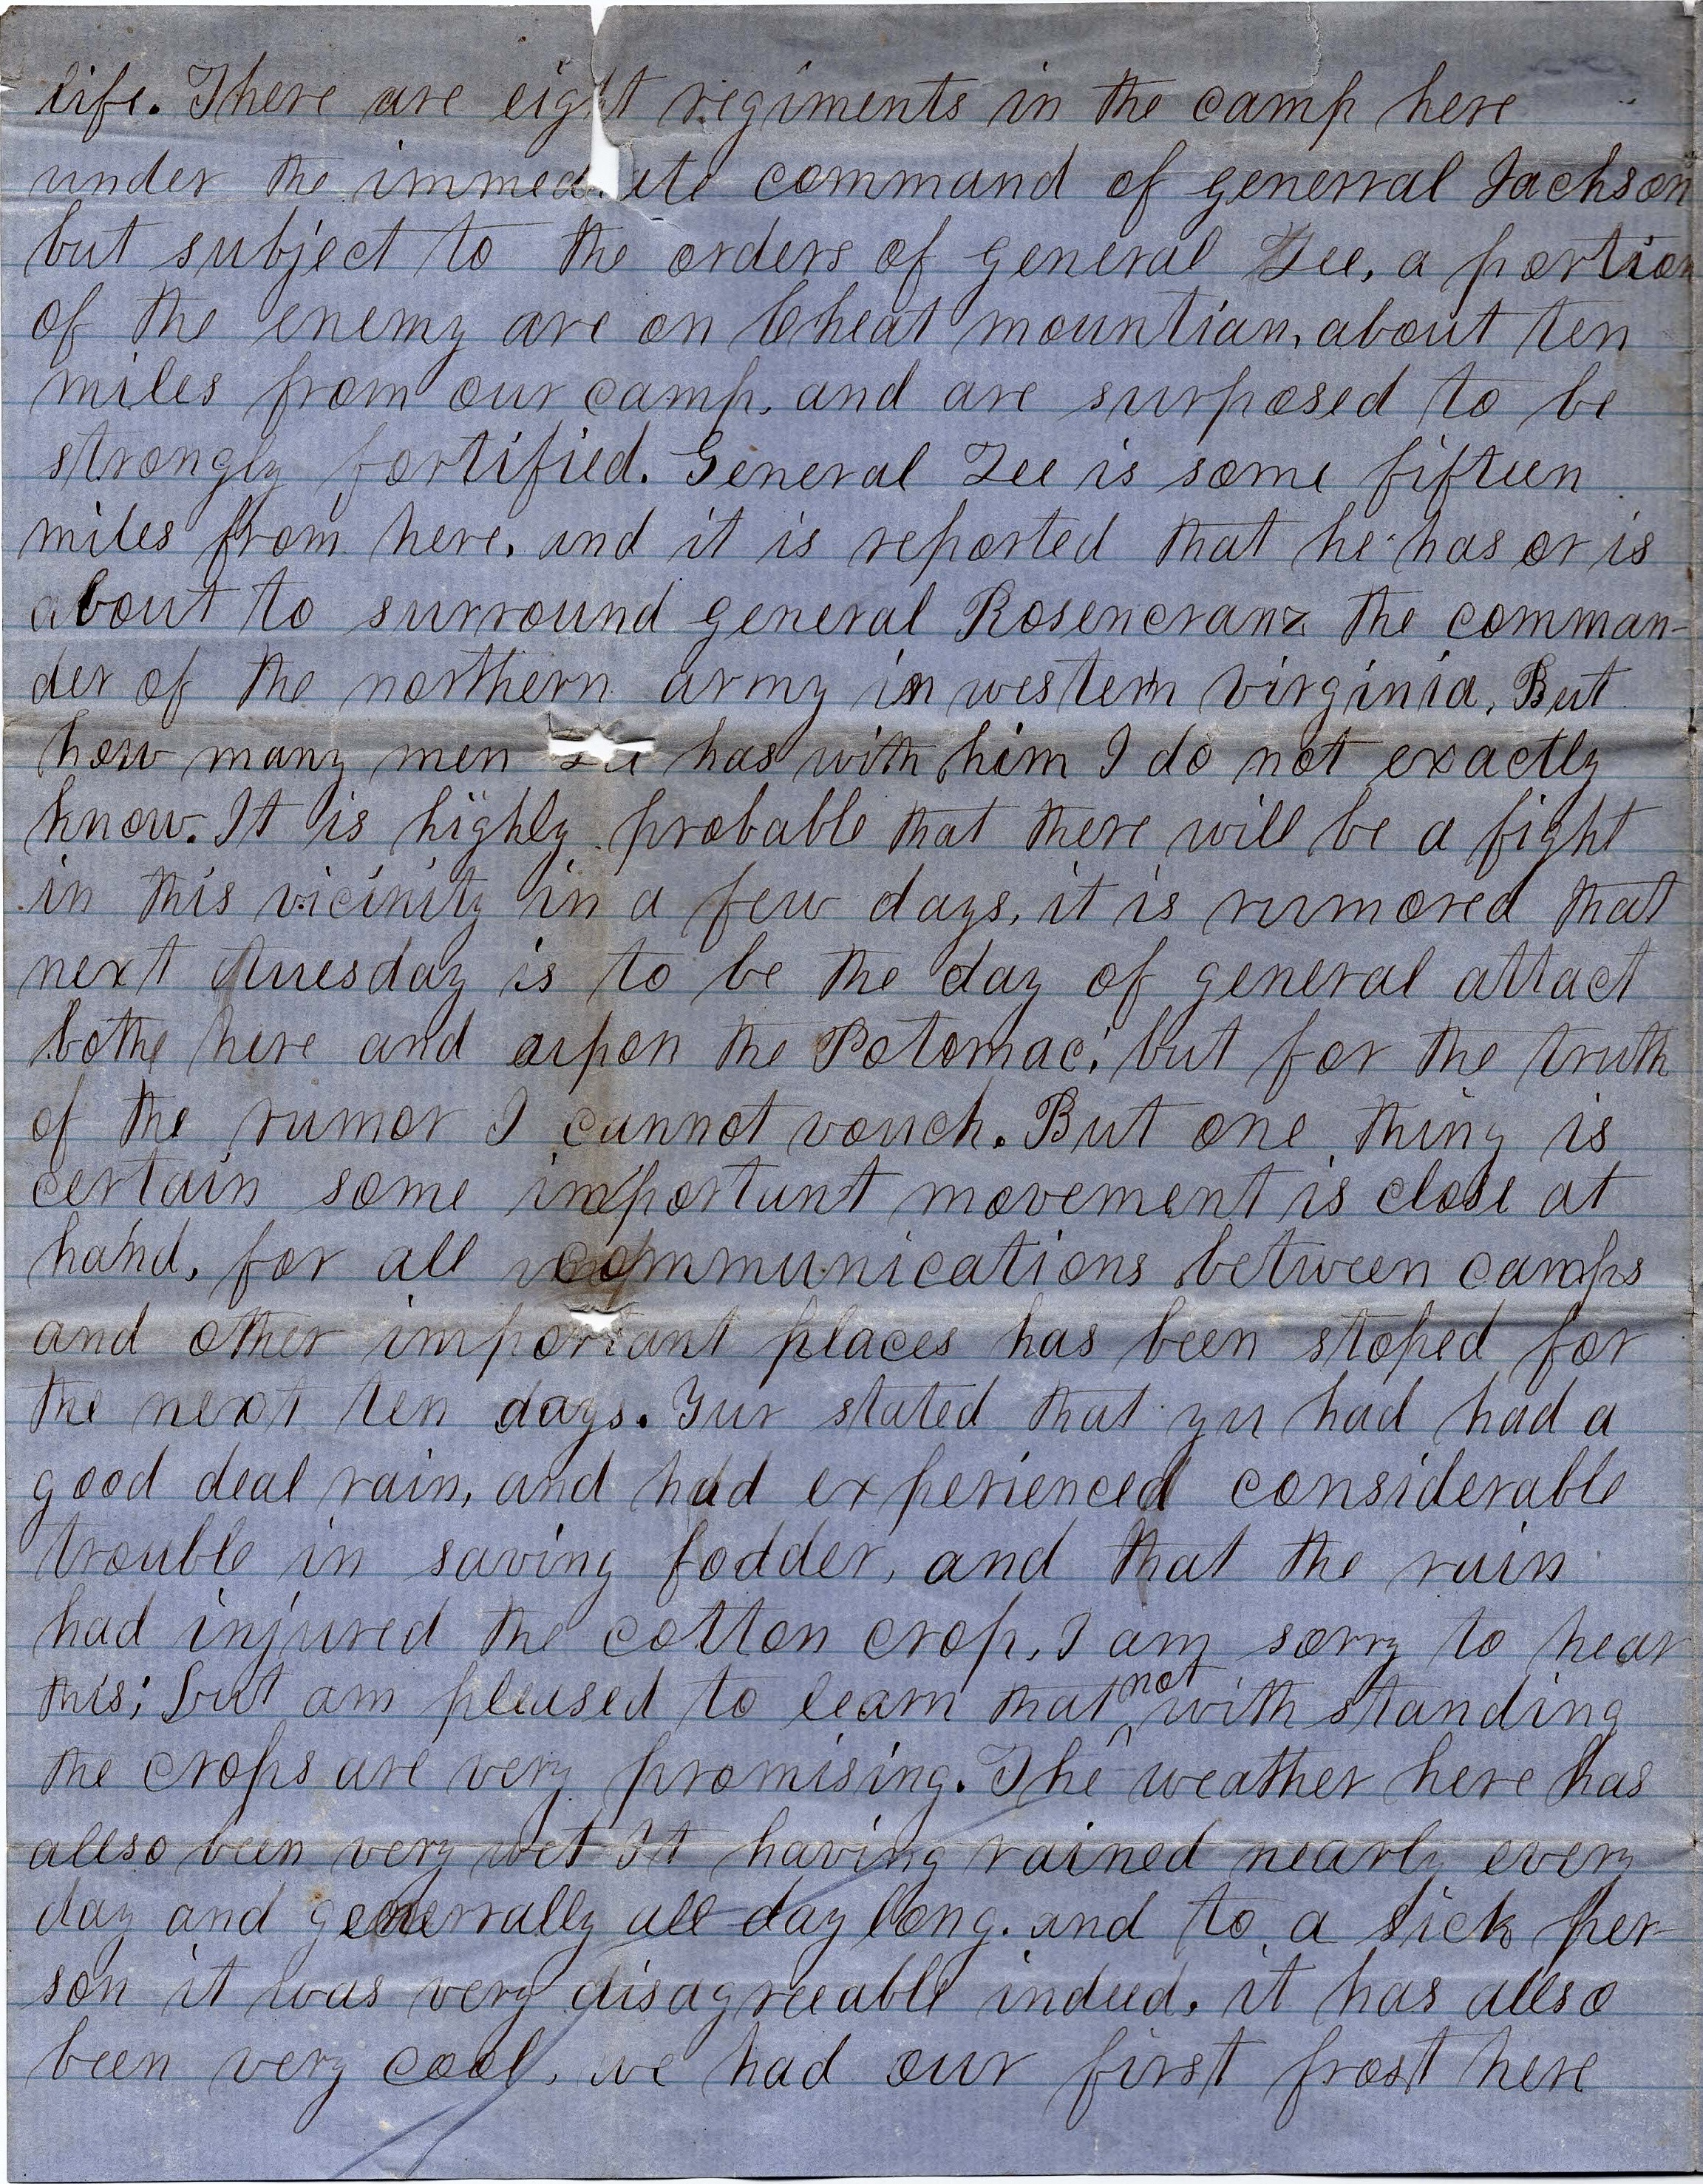 life. There are eight regiments in the camp here
under the immediate command of generral Jackson
but subject to the orders of general Lee, a portion
of the enemy are on Cheat mountian, about ten
miles from our camp, and are surposed to be
strongly fortified. General Lee is some fifteen
miles from here, and it is reported that he has or is
about to surround general Rosencranz the comman-
der of the northern army in western virginia, But
how many men Lee has with him I do not exactly
know. It is highly probable that there will be a fight
in this vicinity in a few days, it is rumored that
next tuesday is to be the day of general attact
bothe here and upon the Potomac, but for the truth
of the rumor I cannot vouch. But one thing is
certain some important movement is close at
hand, for all communications between camps
and other important places has been stoped for
the next ten days. Yur stated that yu had had a
good deal rain, and had experienced considerable
trouble in saving fodder, and that the rain
had injured the cotton crop, I am sorry to hear
this; but am pleased to learn that not with standing
the crops are very promising. The weather here has
allso been very wet It having rained nearly every
day and generrally all day long. and to a sick per-
son it was very disagreeable indeed, it has allso
been very cool, we had our first frost here